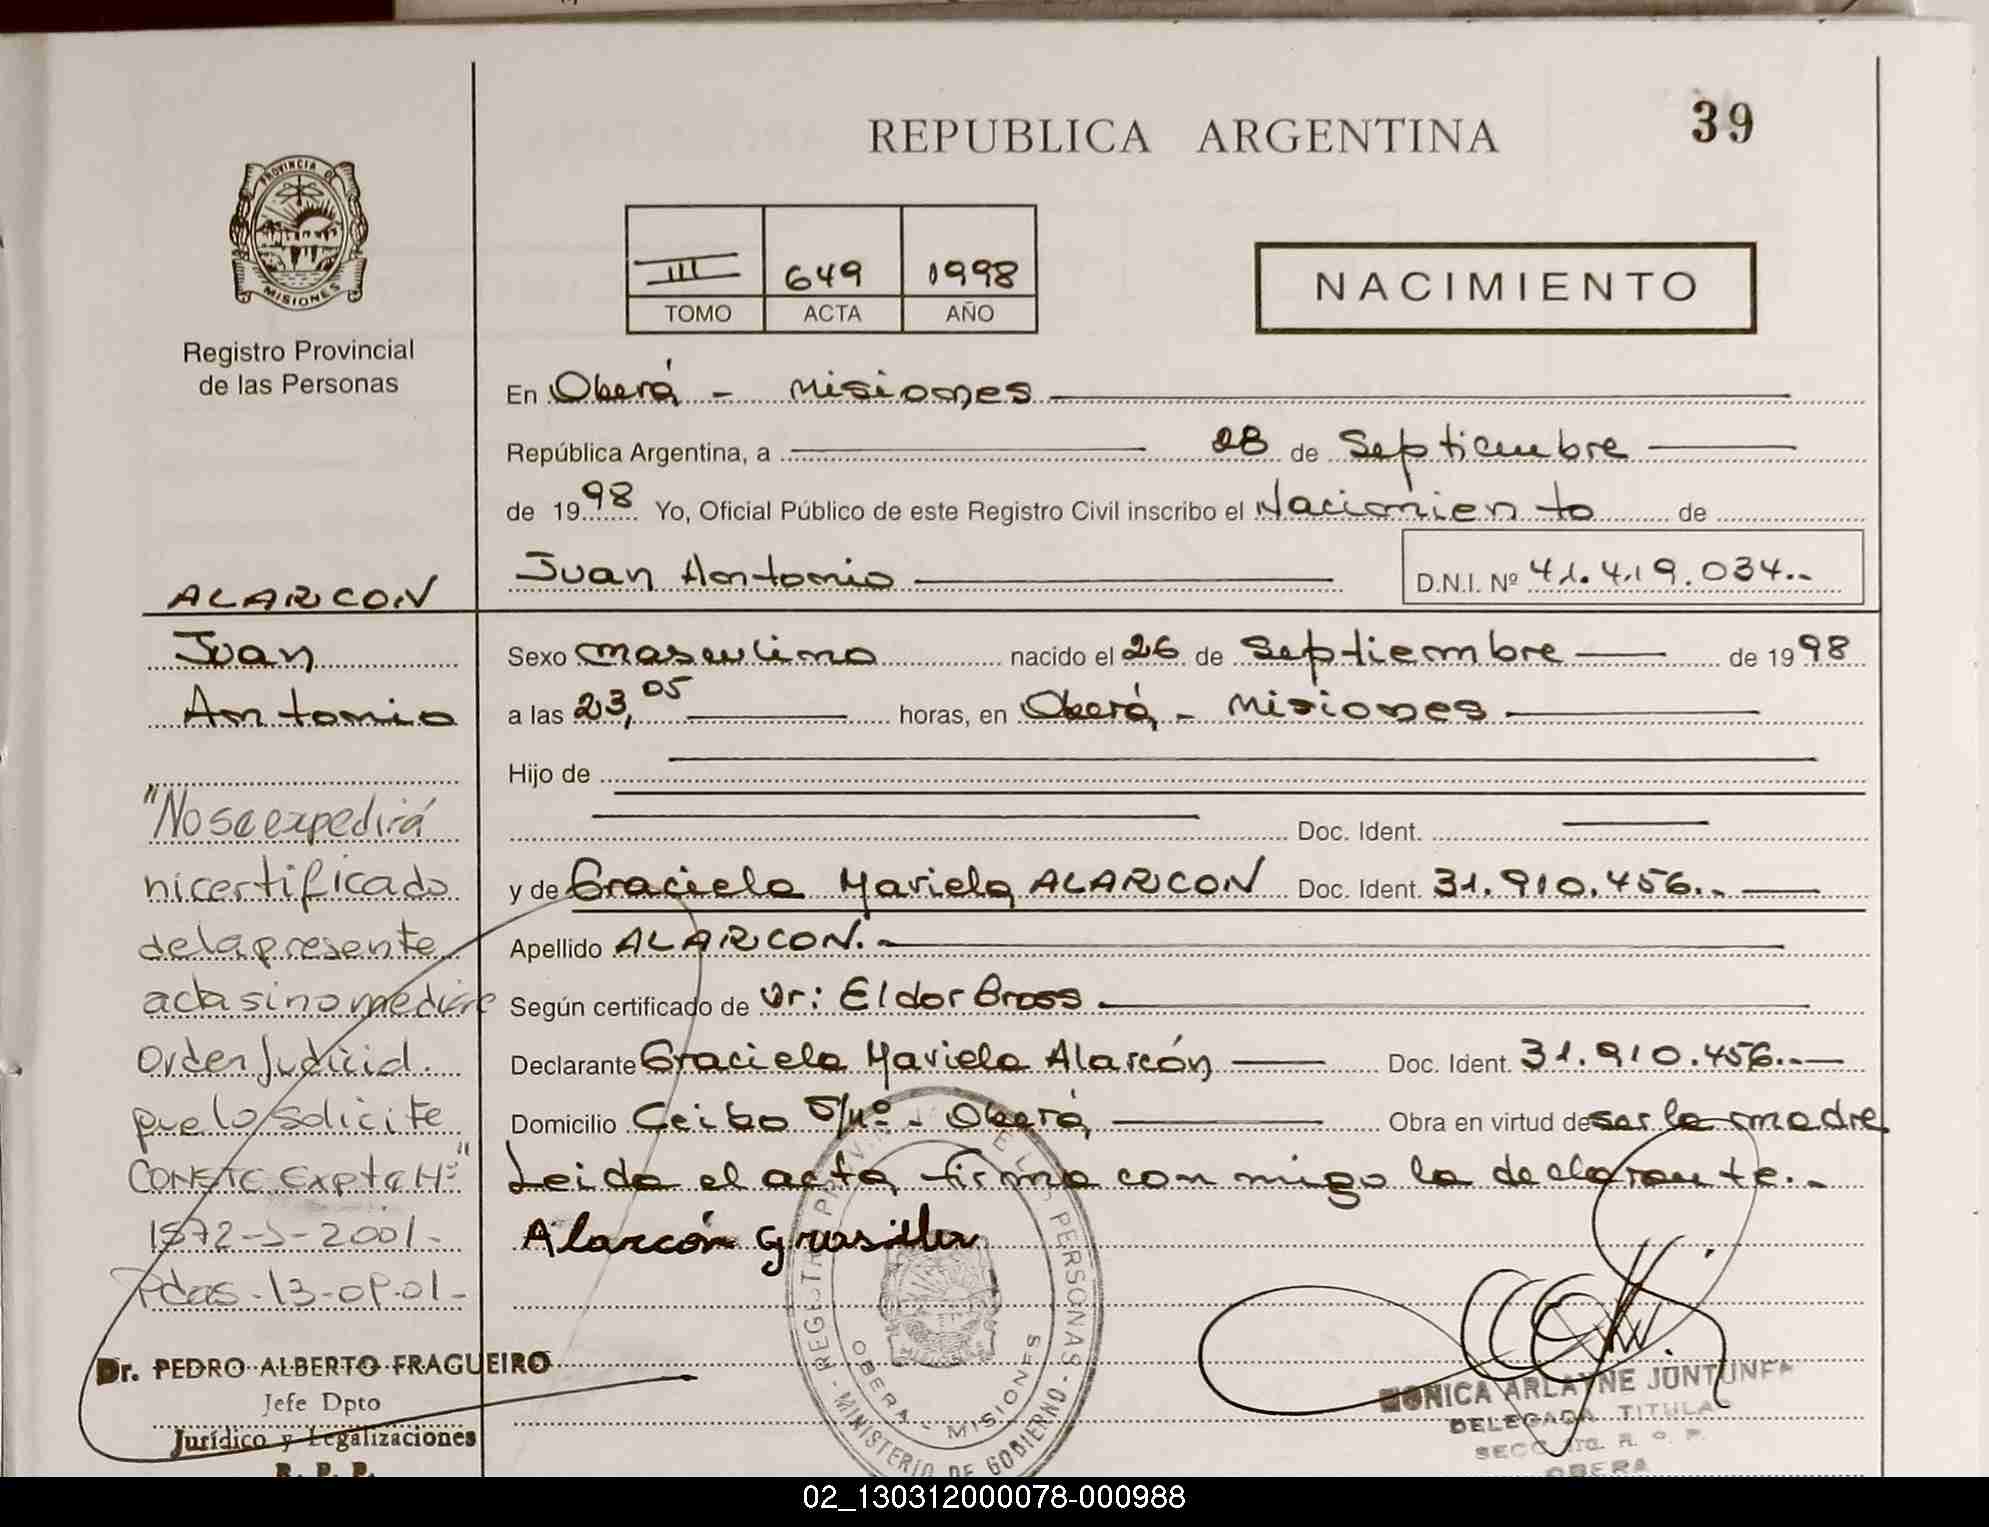 REPUBLICA ARGENTINA
39
PROVINCIA DE
MISIONES
Registro Provincial
de las Personas
III 649 1998
TOMO ACTA AÑO
NACIMIENTO
En Oberá - Misiones
República Argentina, a 28 de Septiembre
de 1998 Yo, Oficial Público de este Registro Civil inscribo el Nacimiento de
Juan Antonio D.N.I. Nº 41.419.034.-
ALARCON
Juan
Antonio
Sexo masculino nacido el 26 de Septiembre de 1998
a las 23,05 horas, en Oberá - Misiones
Hijo de
Doc. Ident.
y de Graciela Mariela ALARCON Doc. Ident. 31.910.456.-
Apellido ALARCON.-
Según certificado de Dr: Eldor Bross
Declarante Graciela Mariela Alarcón Doc. Ident. 31.910.456.-
Domicilio Ceibo S/nº - Oberá Obra en virtud de ser la madre
Leida el acta, firma con migo la declarante.-
Alarcón
"No se expedirá
ni certificado
de la presente
acta sino medire
Orden Judicial.
que lo solicite
2001-
Pdas.
Dr. PEDRO ALBERTO FRAGUEIRO
Jefe Dpto
Jurídico y Legalizaciones
R. P. P.
PERSONAS - MINISTERIO DE GOBIERNO -
OBERA - MISIONES
MONICA ARLAYNE
DELEGADA TITULAR
OBERA
02_130312000078-000988